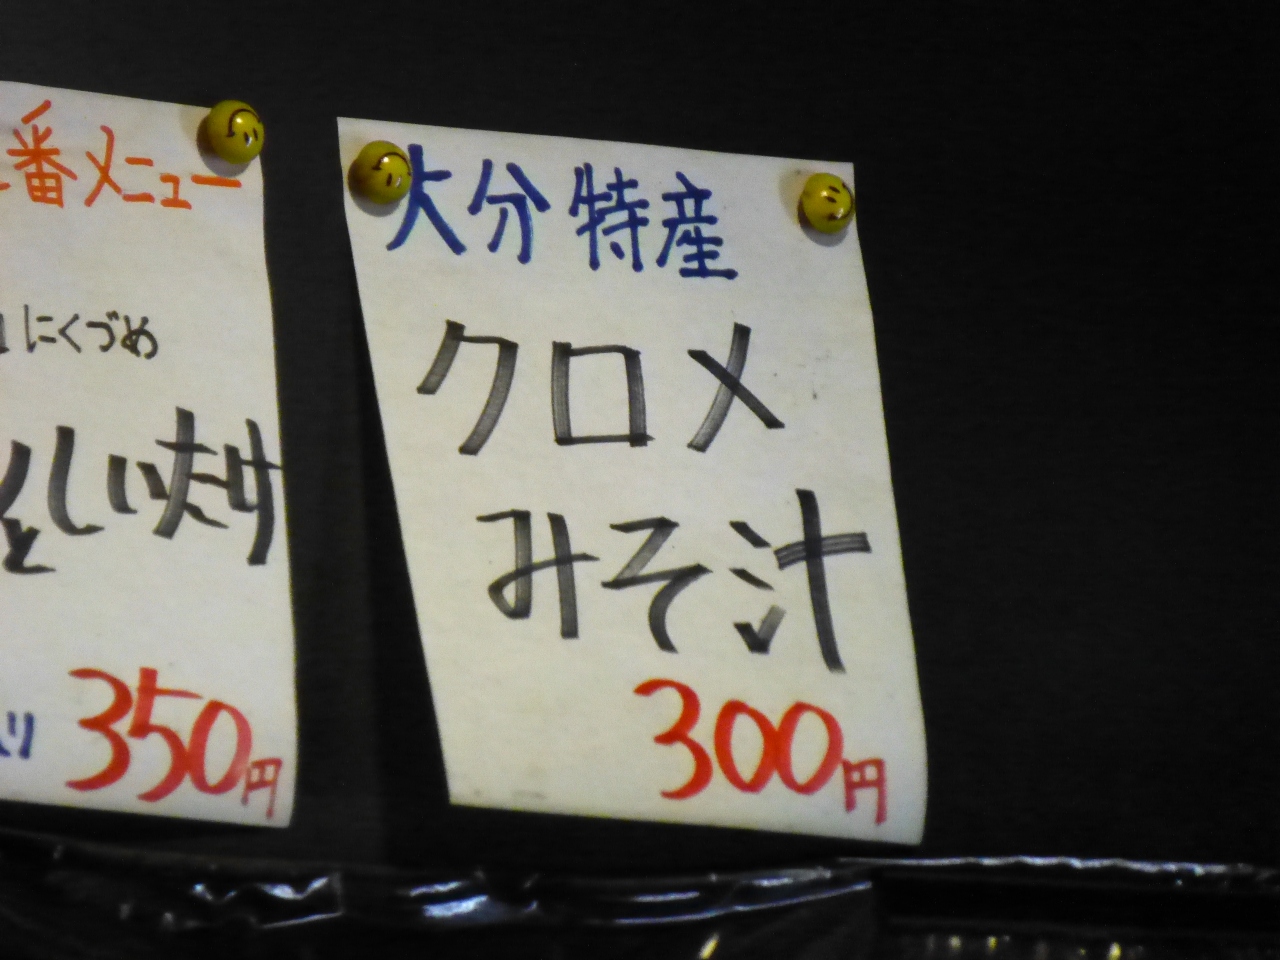 番メニュー
にくづめ
しいたけ
入り 350円
大分特産
クロメ
みそ汁
300円